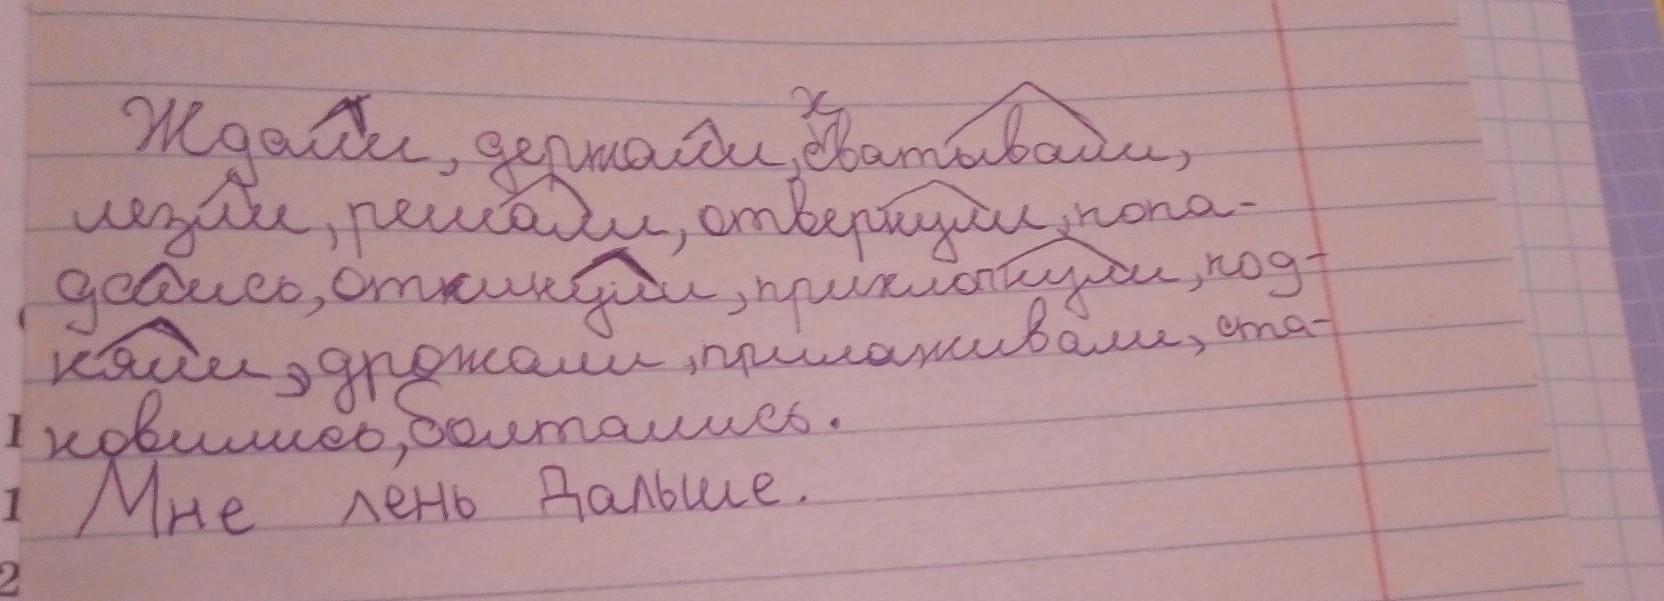 Ждали, держали, схватывали,
лезли, решали, отвернули, попа-
дались, откинули, прихлопнули, под-
кяли, дрожали, прилаживали, ста-
1 новились, болтались.
1 Мне лень дальше.
2